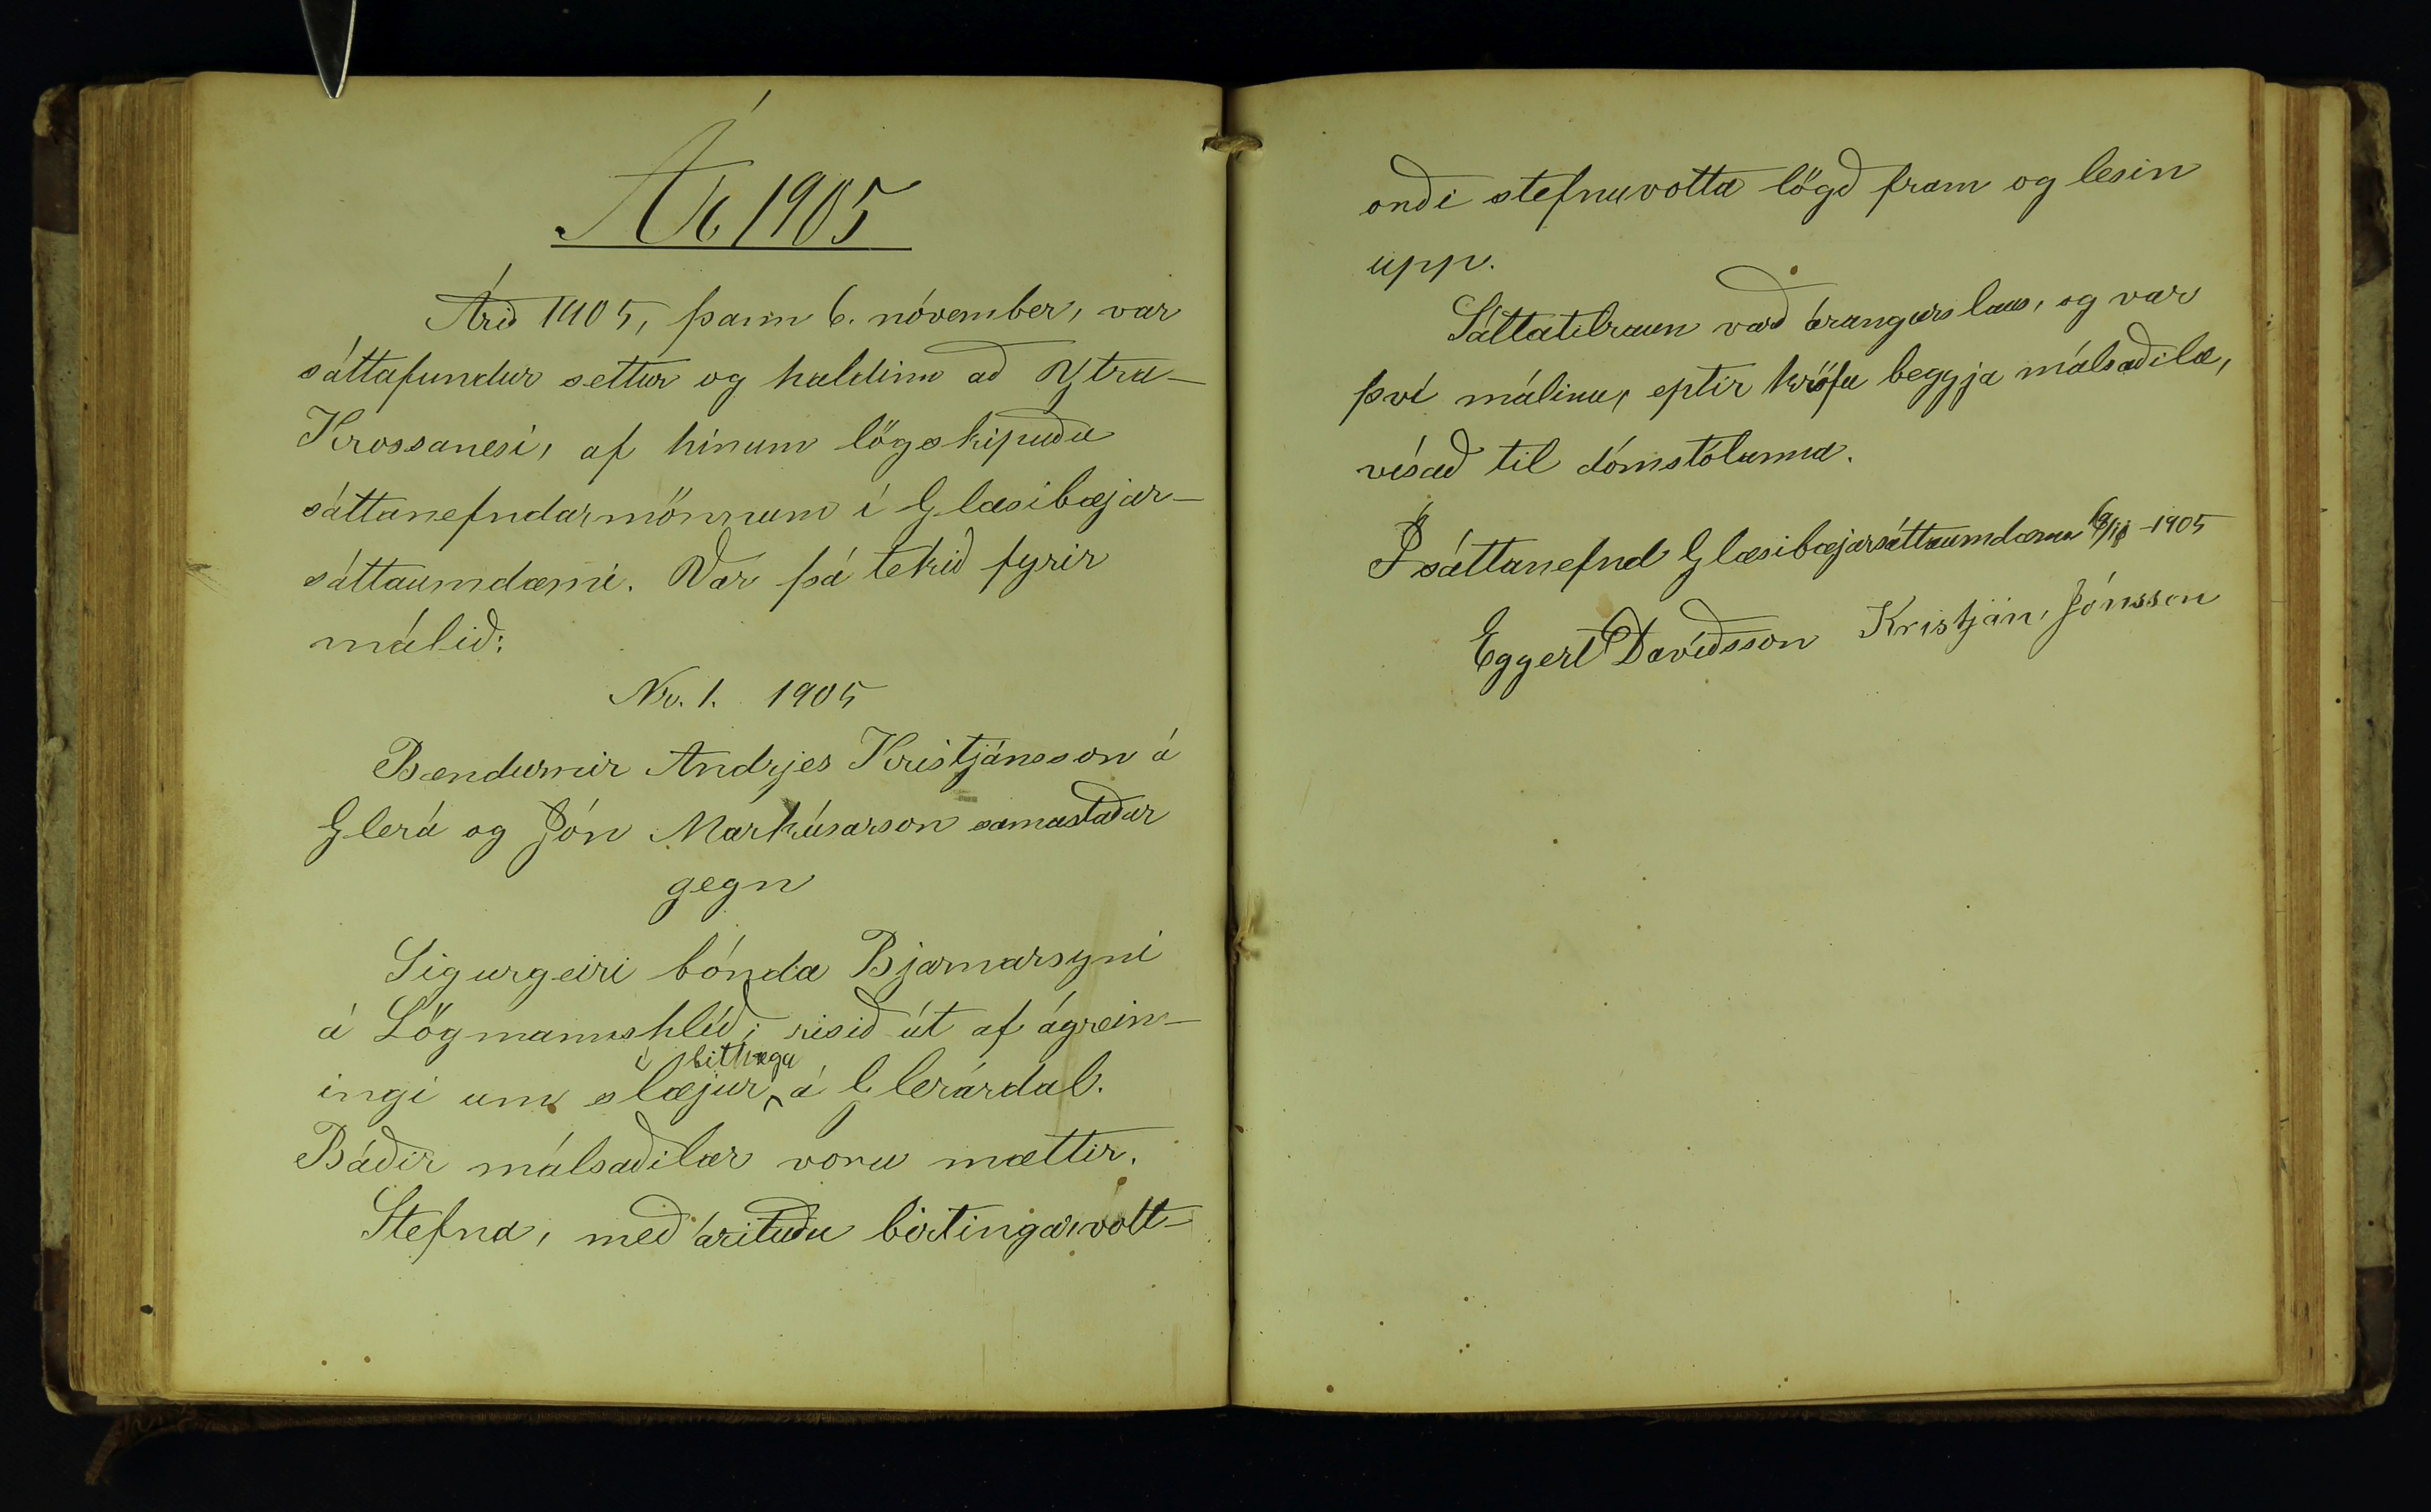 Ár 1905
Árið 1905, þann 6. nóvember, var
sáttafundur settur og haldinn að Ytra-
Krossanesi, af hinum lögskipuðu
sáttanefndarmönnum í Glæsibæjar-
sáttaumdæmi. Var þá tekið fyrir
málið:
Nr. 1. 1905
Bændurnir Andrjes Kristjánsson á
Glerá og Jón Markúsarson samastaðar
gegn
Sigurgeiri bónda Bjarnarsyni
á Lögmannshlíð; risið út af ágrein-
í bithaga
ingi um slægjur á Glerárdal.
Báðir málsaðilar voru mættir.
Stefna, með árituðu birtingarvott-
orði stefnuvotta lögð fram og lesin
upp.
Sáttatilraun varð árangurslaus, og var
því málinu, eptir kröfu beggja málsaðila,
vísað til dómstólanna.
Í sáttanefnd Glæsibæjarsáttaumdæma -1905
Eggert Davíðsson Kristján Jónsson